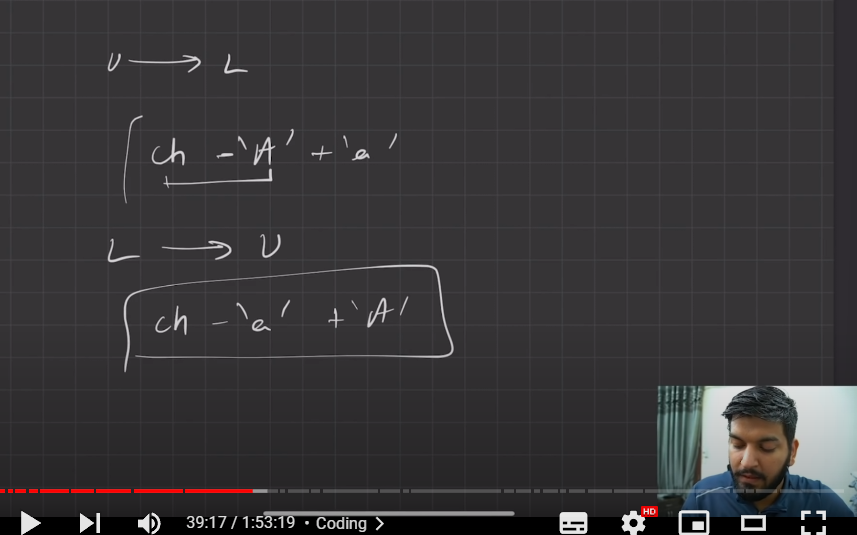 U → L
ch - 'A' + 'a'
L → U
ch - 'a' + 'A'
HD
39:17 / 1:53:19 • Coding >